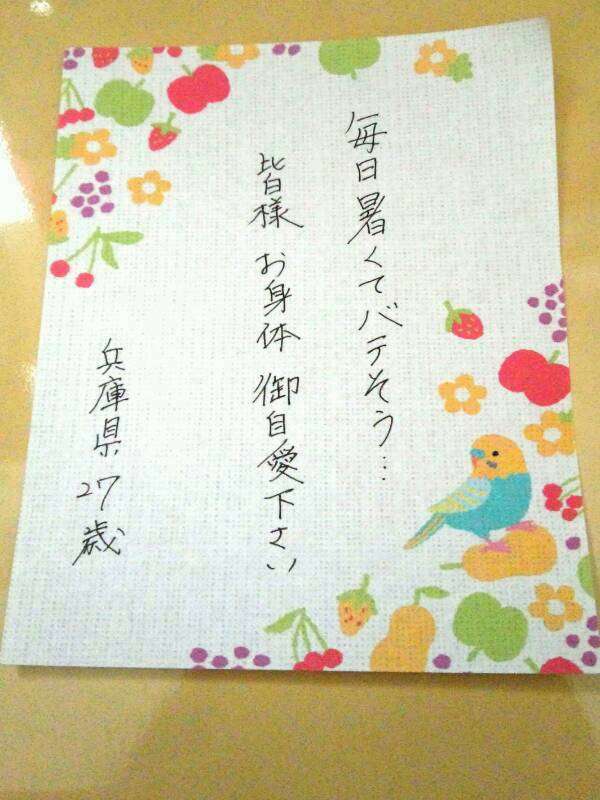 毎日暑くてバテそう…
皆様 お身体 御自愛下さい
兵庫県 27歳